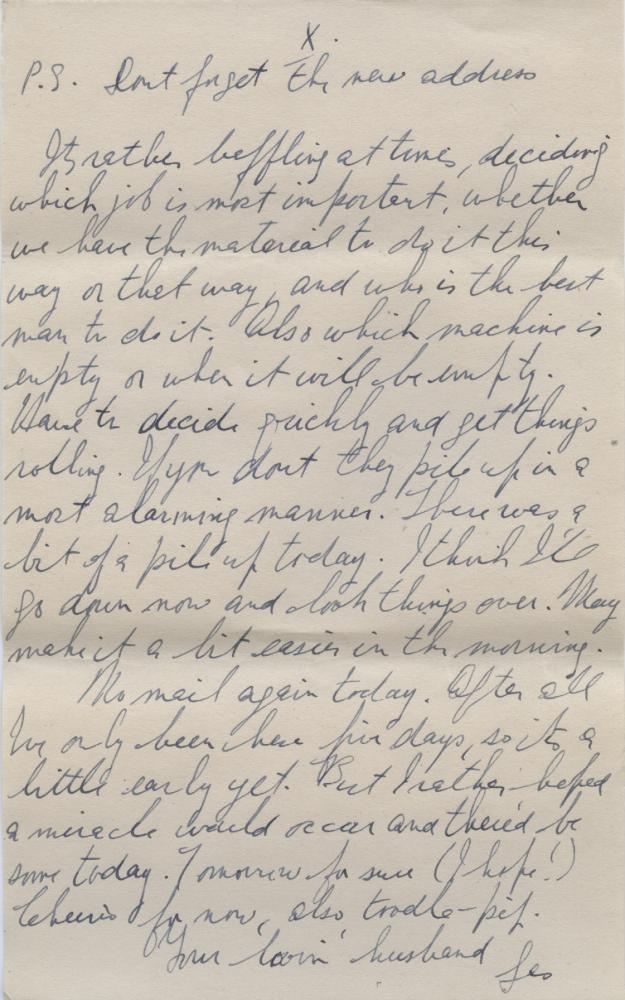 X.
P.S. Dont forget the new address
Its rather baffling at times, deciding
which job is most important, whether
we have the material to do it this
way or that way, and who is the best
man to do it. Also which machine is
empty or when it will be empty.
Have to decide quickly and get things
rolling. If you dont they pile up in a
most alarming manner. There was a
bit of a pile up today. I think I'll
go down now and look things over. May
make it a bit easier in the morning.
No mail again today. After all
I've only been here five days, so its a
little early yet. But I rather hoped
a miracle would occur and there'd be
some today. Tomorrow for sure (I hope!)
Cheerio for now, also toodle-pip.
Your lovin' husband
Les